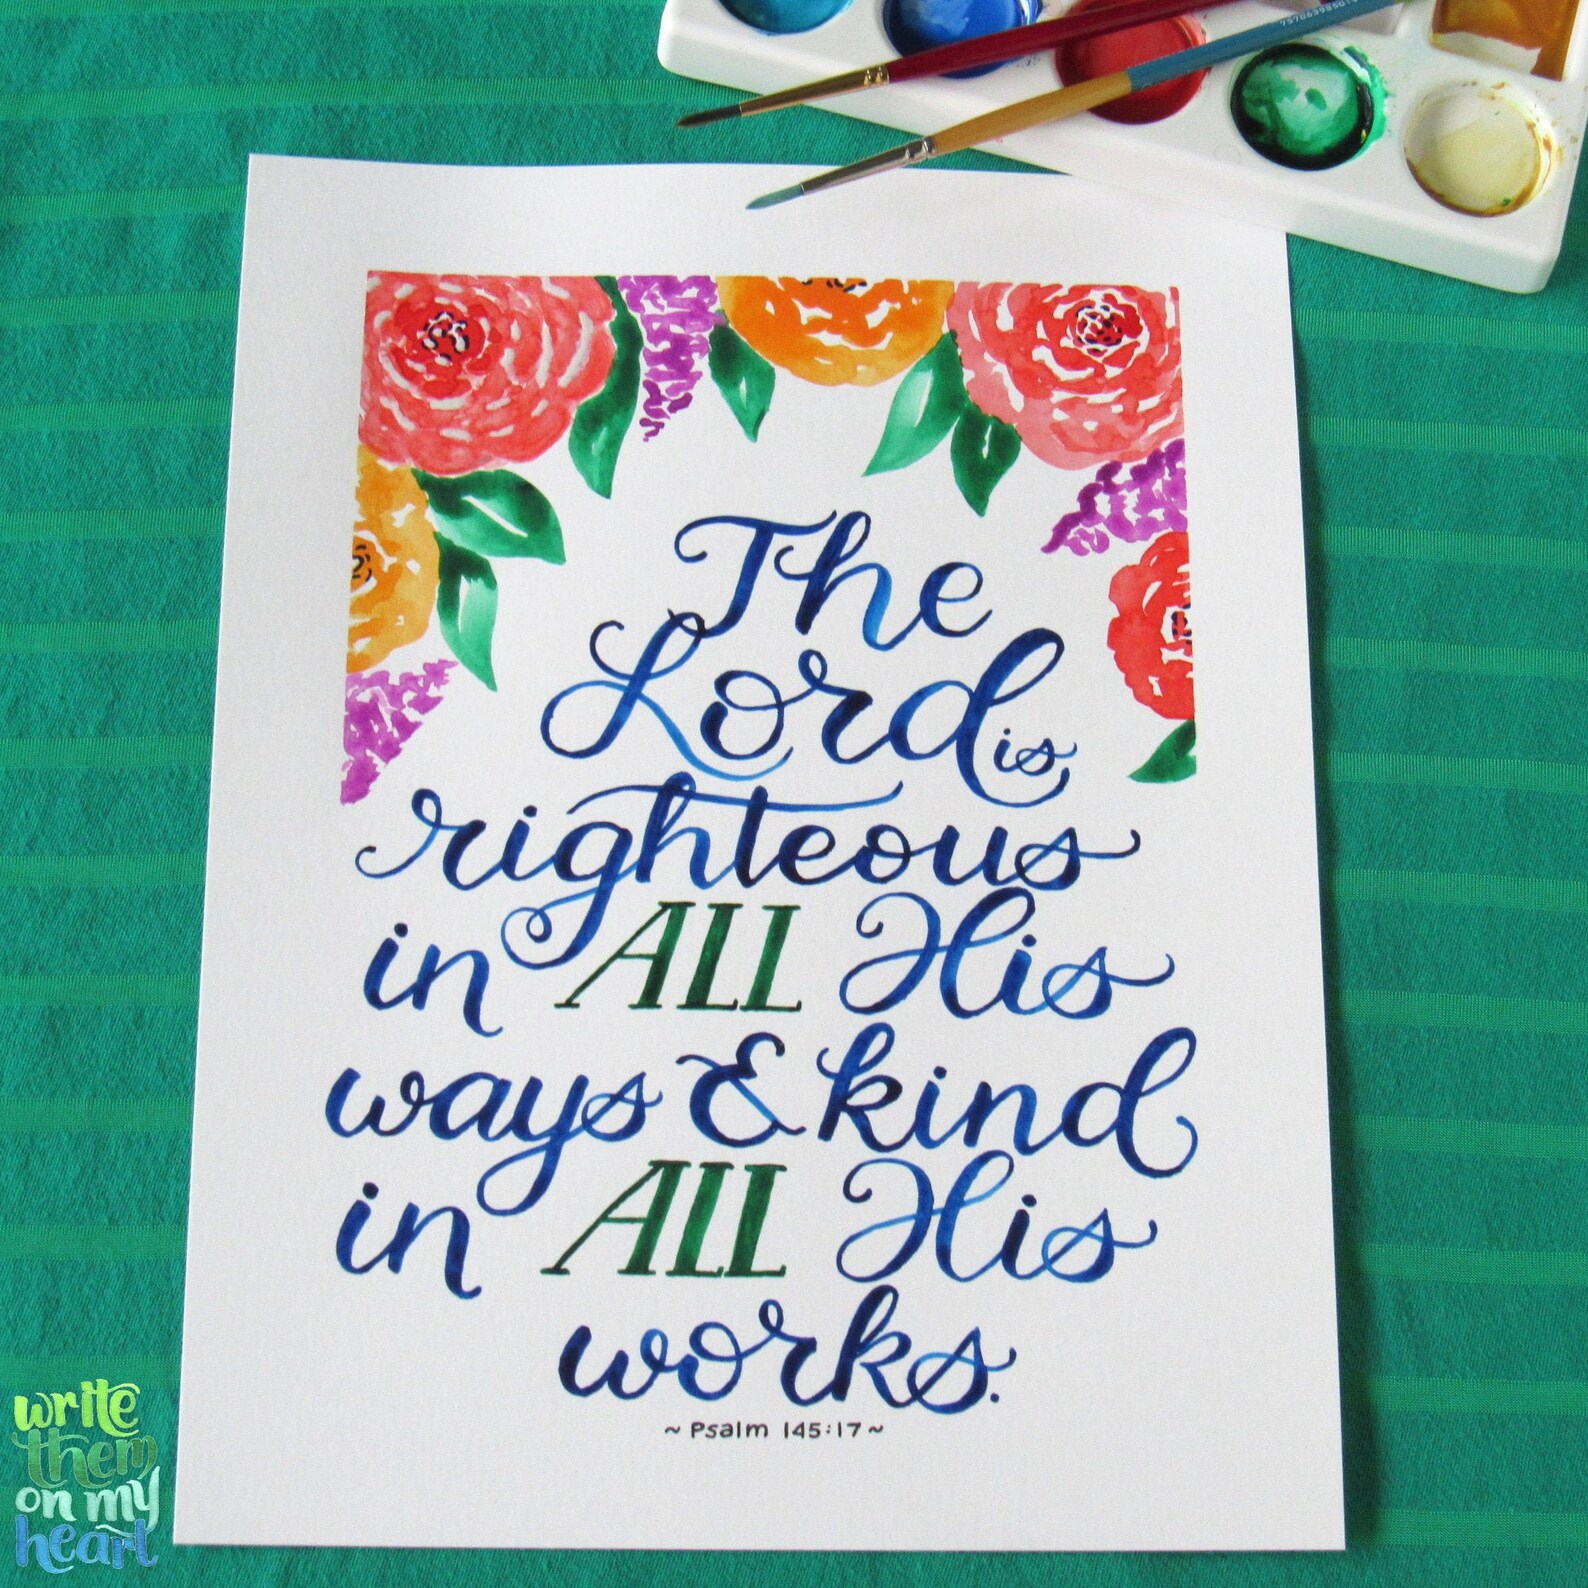 The
Lord is
righteous
in ALL His
ways & kind
in ALL His
works.
~ Psalm 145:17 ~
write
them
on my
heart